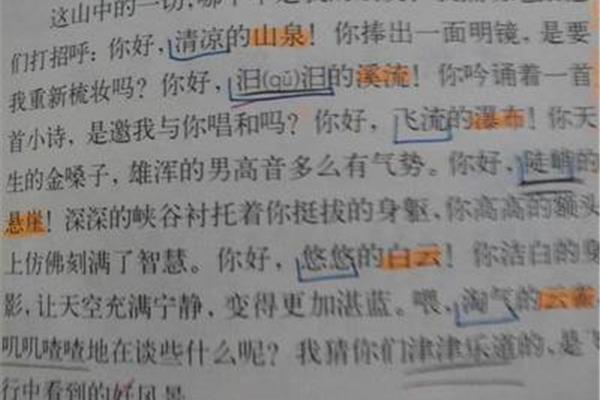 这山中的一切,哪个不是我的朋友?我热切地跟他
们打招呼:你好,清凉的山泉!你捧出一面明镜,是要
我重新梳妆吗?你好,汩(gǔ)汩的溪流!你吟诵着一首
首小诗,是邀我与你唱和吗?你好,飞流的瀑布!你天
生的金嗓子,雄浑的男高音多么有气势。你好,陡峭的
悬崖!深深的峡谷衬托着你挺拔的身躯,你高高的额头
上仿佛刻满了智慧。你好,悠悠的白云!你洁白的身
影,让天空充满宁静,变得更加湛蓝。喂,淘气的云雀,
叽叽喳喳地在谈些什么呢?我猜你们津津乐道的,是飞
行中看到的好风景